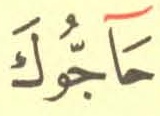 حَآجُّوكَ